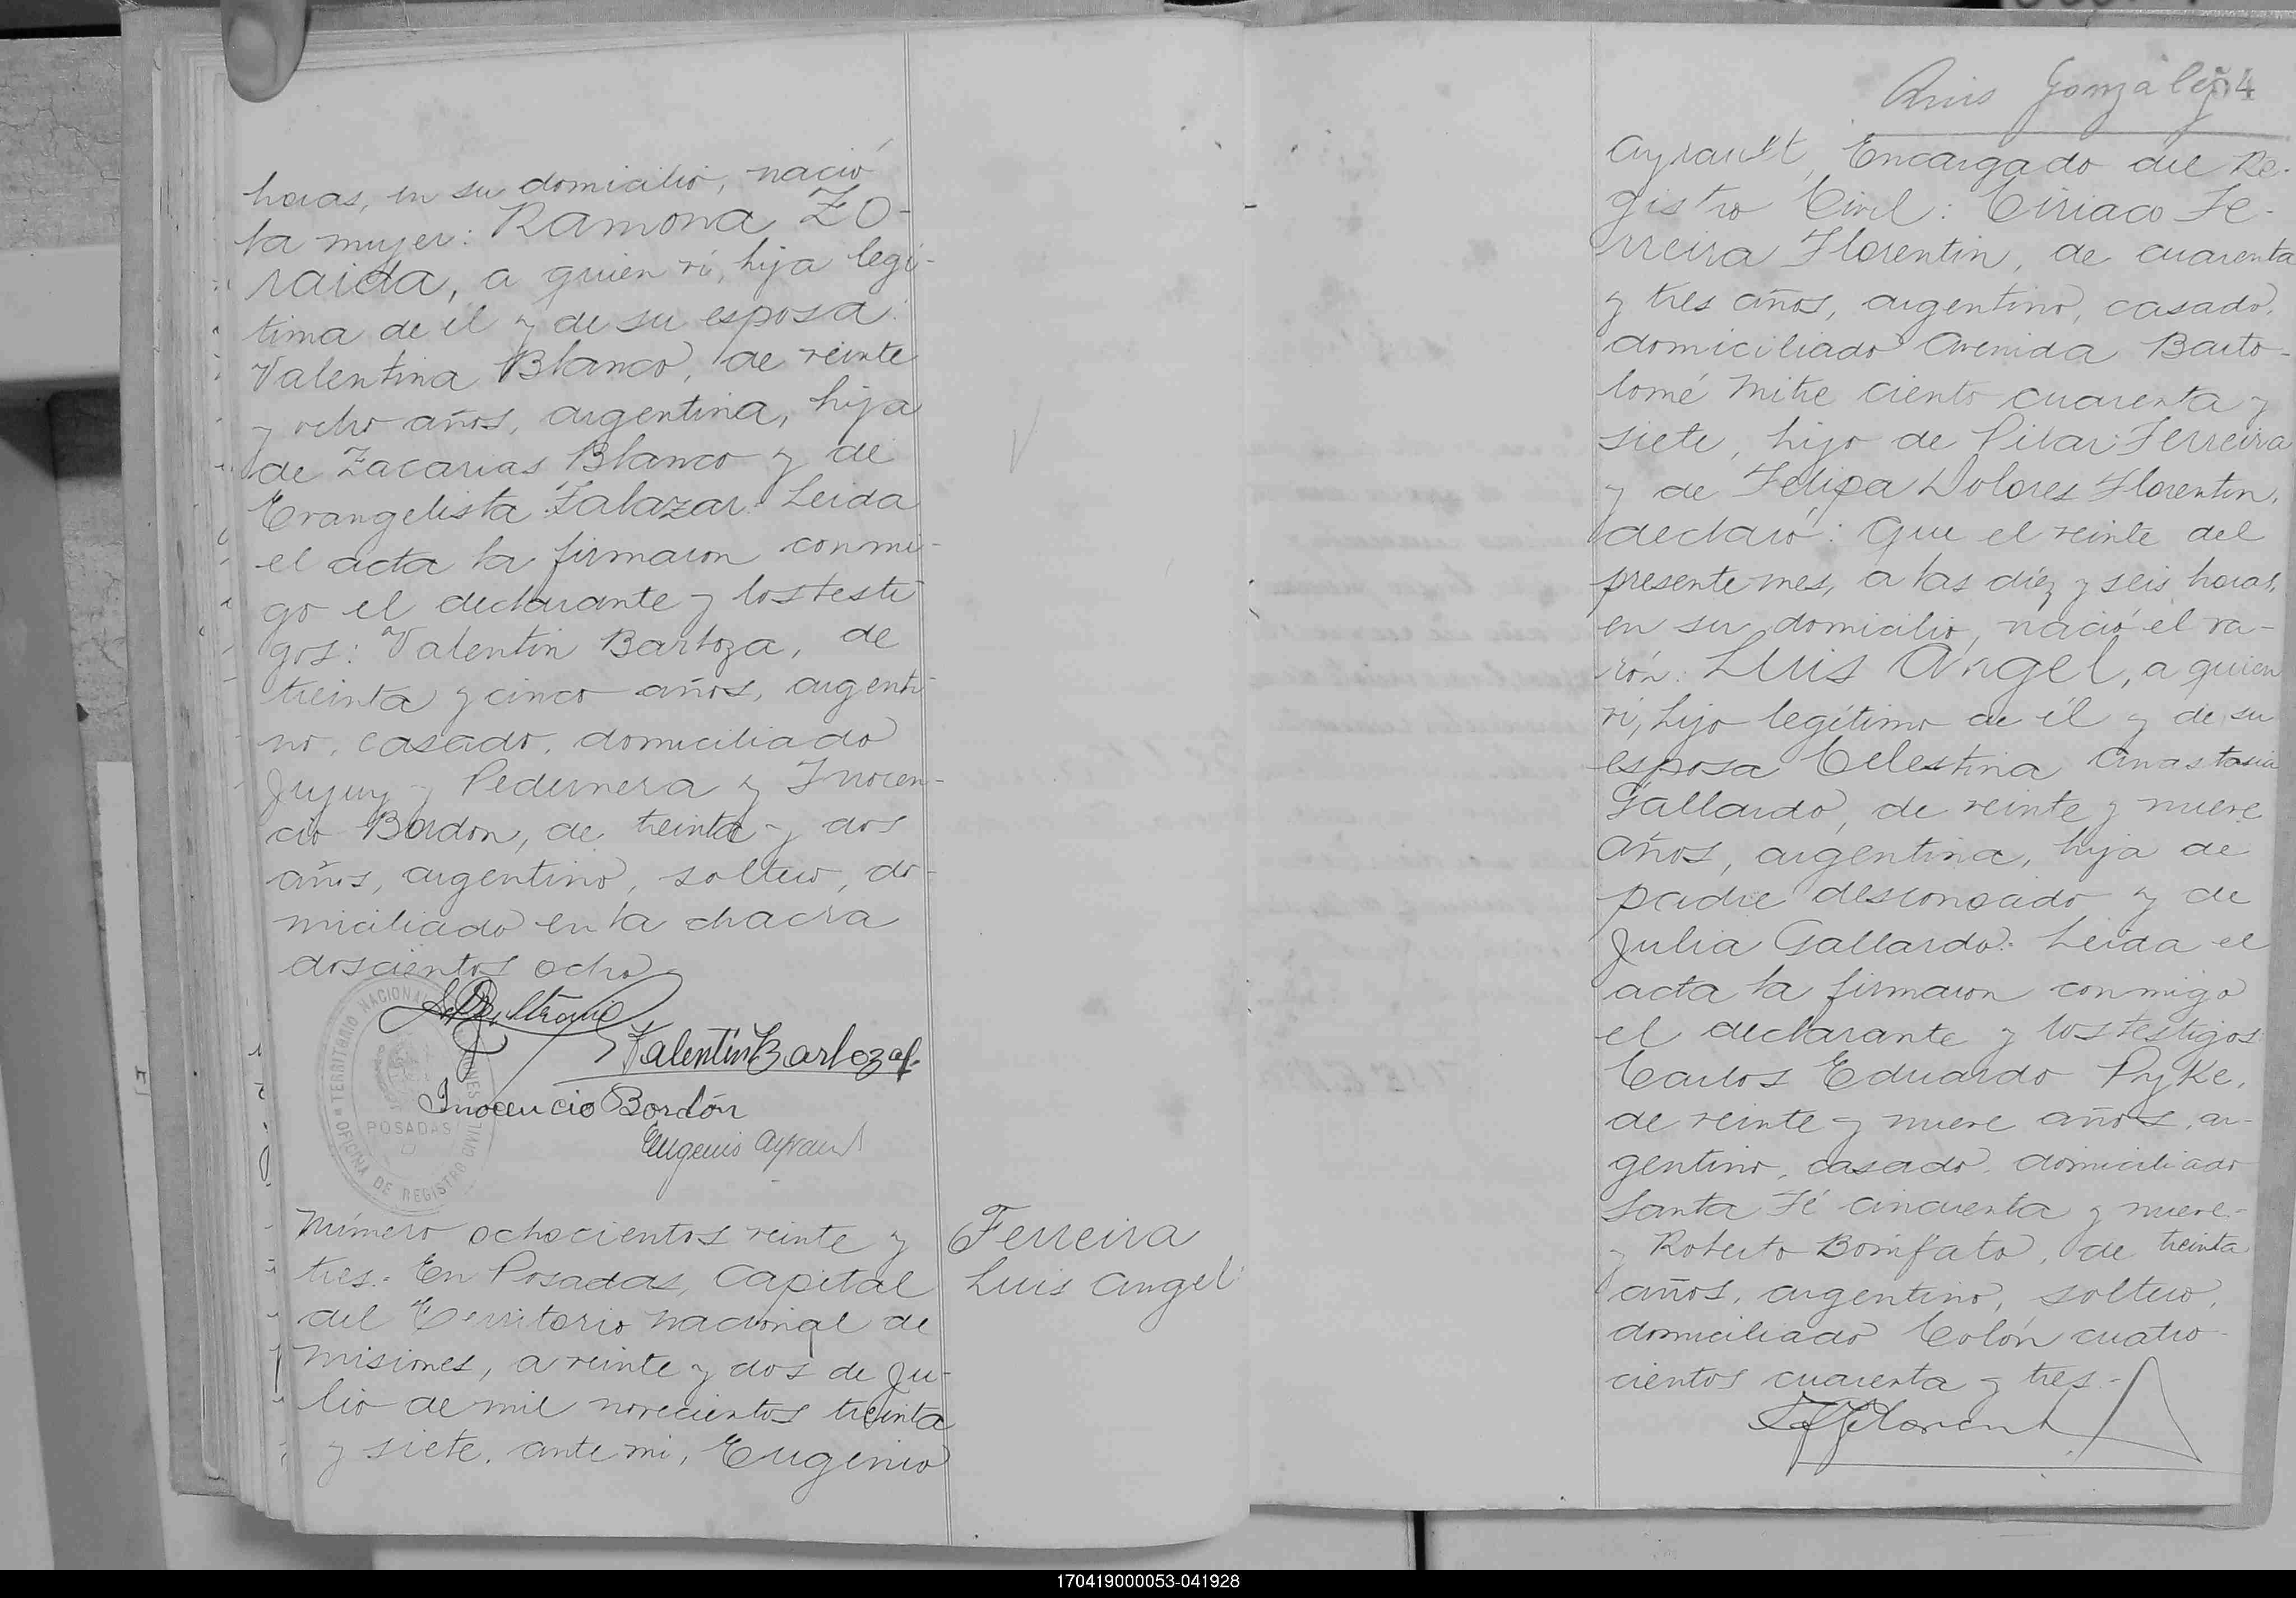 horas, en su domicilio, nació
la mujer: Ramona Zo-
raida, a quien ví, hija legi-
tima de él y de su esposa
Valentina Blanco, de veinte
y ocho años, argentina, hija
de Zacarias Blanco y de
Evangelista Zalazar. Leida
el acta la firmaron conmi-
go el declarante y los testi-
gos: Valentin Barboza, de
treinta y cinco años, argenti-
no, casado, domiciliado
Jujuy y Pedernera y Inocen-
cio Bordon, de treinta y dos
años, argentino, soltero, do-
miciliado en la chacra
doscientos ocho
Valentin Barboza
Inocencio Bordón
Eugenio Ayrault
TERRITORIO NACIONAL MISIONES
POSADAS
OFICINA DE REGISTRO CIVIL
Número ochocientos veinte y
tres.- En Posadas, Capital
del Territorio Nacional de
Misiones, a veinte y dos de Ju-
lio de mil novecientos treinta
y siete, ante mi, Eugenio
Ferreira
Luis Angel
Luis González
Ayrault, Encargado del Re-
gistro Civil: Ciriaco Fe-
rreira Florentin, de cuarenta
y tres años, argentino, casado,
domiciliado Avenida Barto-
lomé Mitre ciento cuarenta y
siete, hijo de Pilar Ferreira
y de Felipa Dolores Florentin,
declaró: Que el veinte del
presente mes, a las diez y seis horas,
en su domicilio, nació el va-
rón: Luis Angel, a quien
ví, hijo legítimo de él y de su
esposa Celestina Anastasia
Gallardo, de veinte y nueve
años, argentina, hija de
padre desconocido y de
Julia Gallardo. Leida el
acta la firmaron conmigo
el declarante y los testigos
Carlos Eduardo Pyke,
de veinte y nueve años, ar-
gentino, casado, domiciliado
Santa Fé cincuenta y nueve-
y Roberto Bonifato, de treinta
años, argentino, soltero,
domiciliado Colón cuatro-
cientos cuarenta y tres.-
170419000053-041928